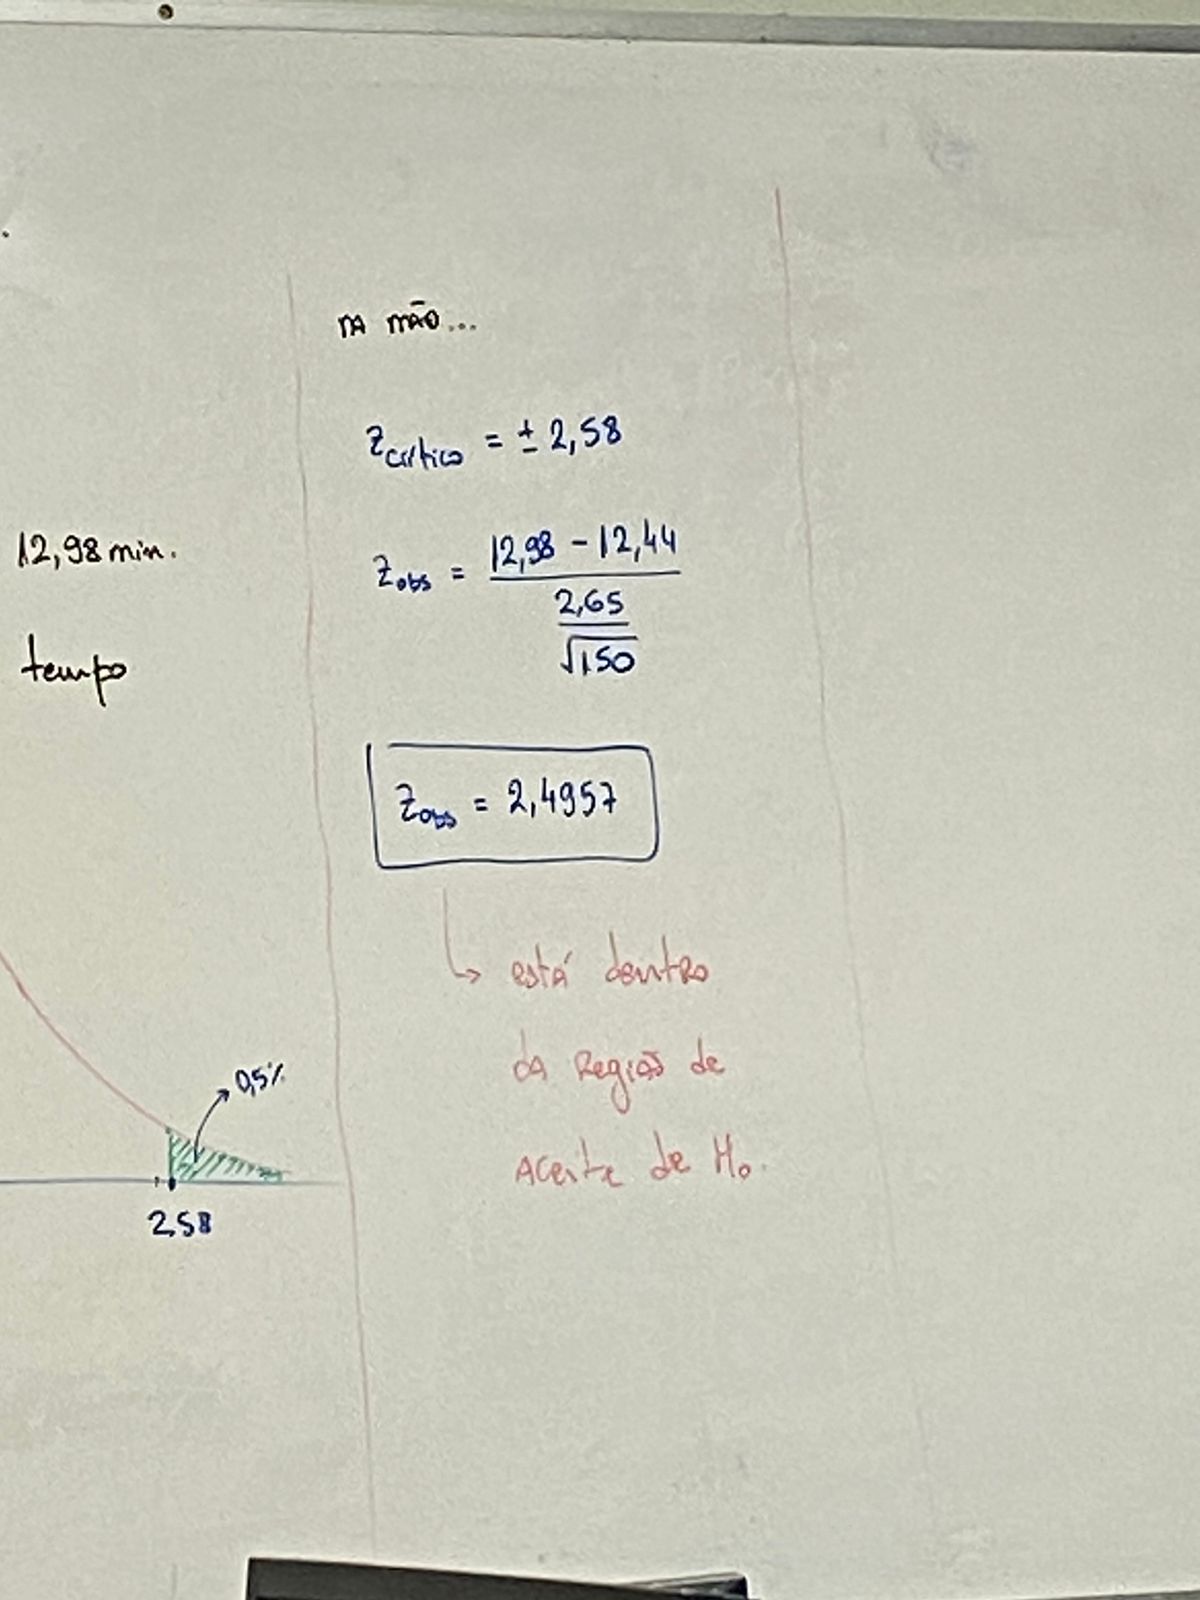 12,98 min.
tempo
0,5%
2,58
na mão...
Zcrítico = ± 2,58
Zobs = 12,98 - 12,44
2,65
√150
Zobs = 2,4957
↳ está dentro
da Região de
Aceite de H₀.